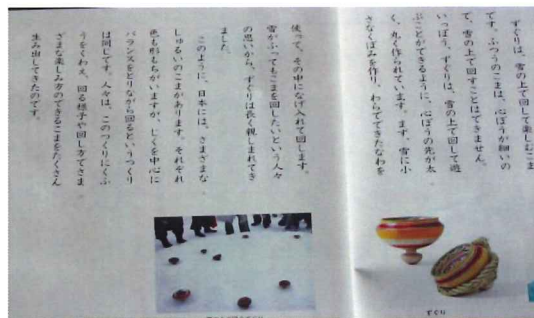 ずぐりは、雪の上で回して楽しむこま
です。ふつうのこまは、心ぼうが細いの
で、雪の上で回すことはできません。
いっぽう、ずぐりは、雪の上で回して遊
ぶことができるように、心ぼうの先が太
く、丸く作られています。まず、雪に小
さなくぼみを作り、わらでできたなわを
ずぐり
使って、その中になげ入れて回します。
雪がふってもこまを回したいという人々
の思いから、ずぐりは長く親しまれてき
ました。
このように、日本には、さまざまな
しゅるいのこまがあります。それぞれ
色も形もちがいますが、じくを中心に
バランスをとりながら回るというつくり
は同じです。人々は、このつくりにくふ
うをくわえ、回る様子や回し方でさま
ざまな楽しみ方のできるこまをたくさん
生み出してきたのです。